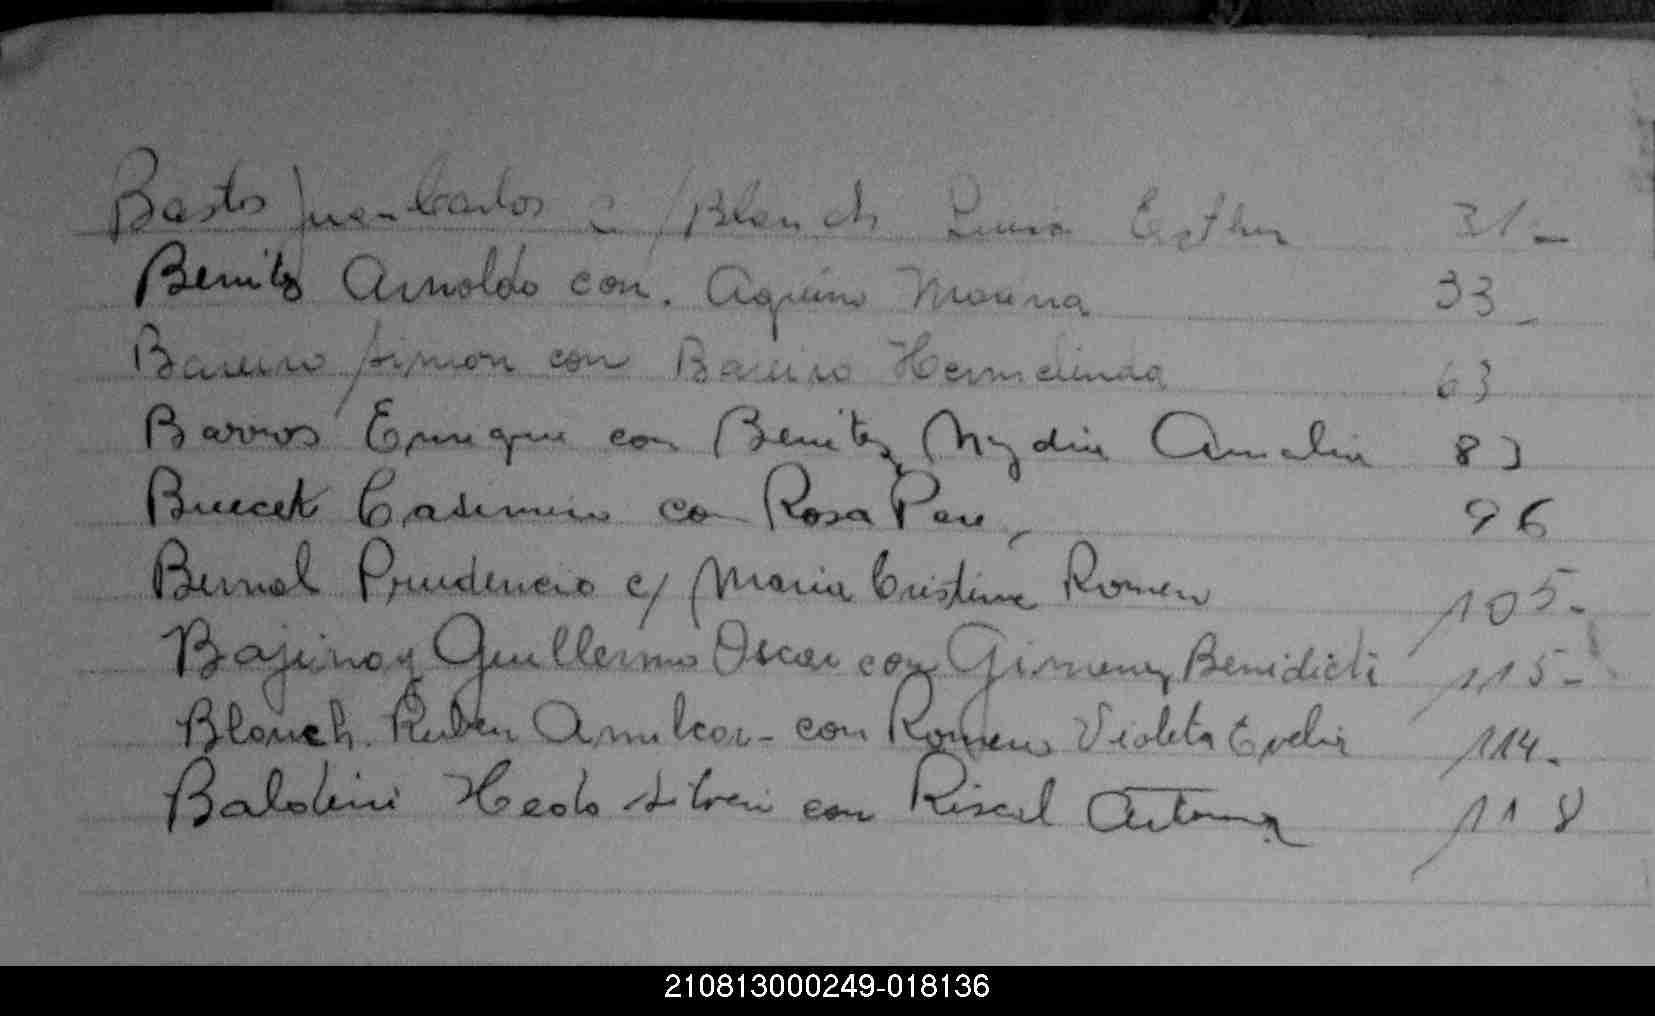 Bastos Juan Carlos c/ Blanch Lucia Esther 31-
Benitez Arnoldo con. Aquino Maura 33_
Bareiro Simon con Bareiro Hermelinda 63
Barros Enrique con Benitez Nydia Amalia 83
Casimiro con Rosa 96
Bernal Prudencio c/ Maria Cristina Romero 105-
Guillermo Oscar con Gimenez 115-
Blanch. Ruben Amilcar- con Romero Violeta Evelia 114.
Baldini con 118
210813000249-018136